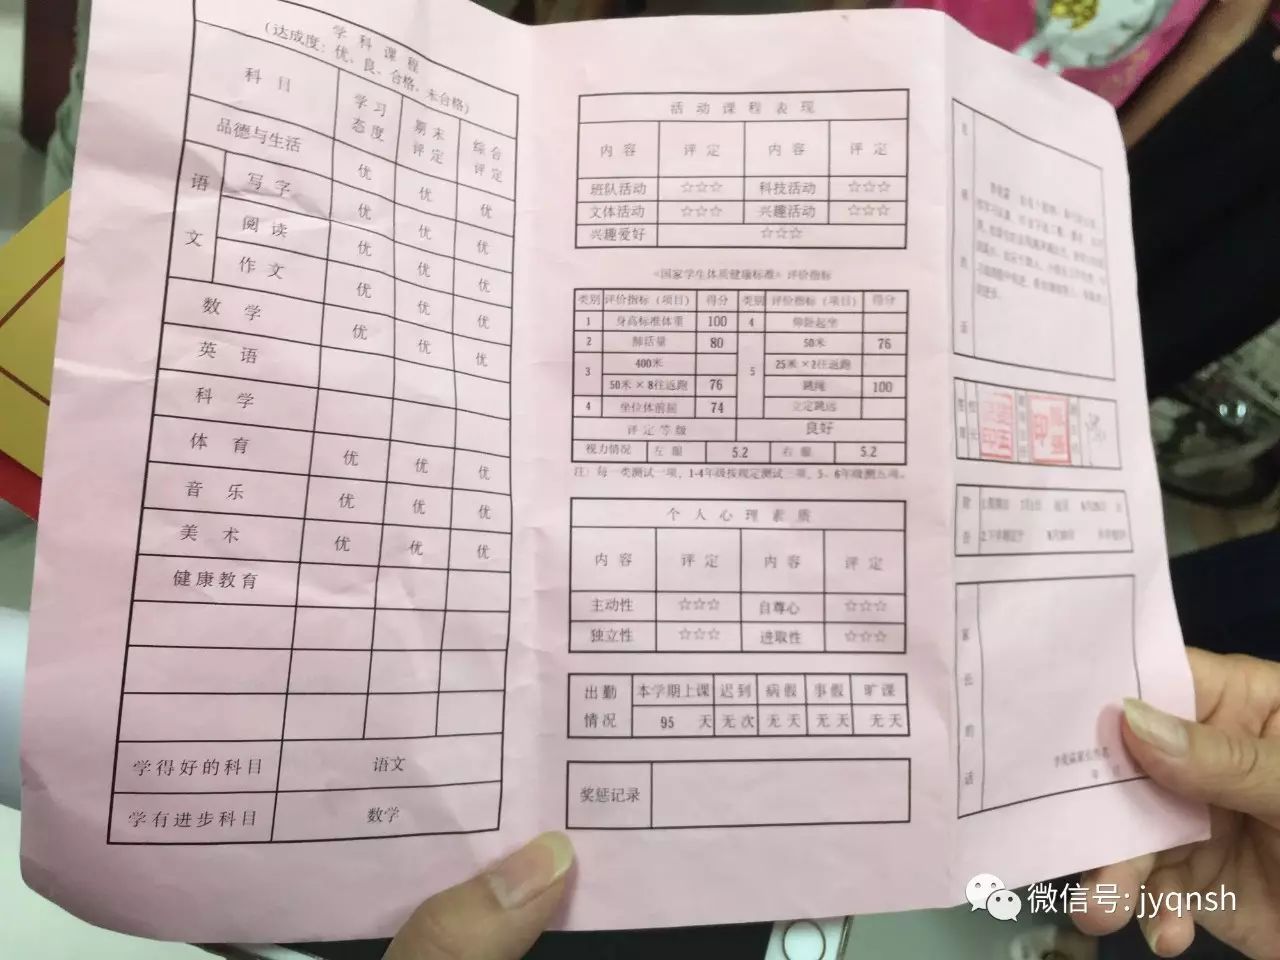 学科课程
(达成度：优、良、合格、未合格)
科目 学习态度 期末评定 综合评定
品德与生活 优 优 优
语文 写字 优 优 优
阅读 优 优 优
作文 优 优 优
数学 优 优 优
英语
科学
体育 优 优 优
音乐 优 优 优
美术 优 优 优
健康教育
学得好的科目 语文
学有进步科目 数学
活动课程表现
内容 评定 内容 评定
班队活动 ☆☆☆ 科技活动 ☆☆☆
文体活动 ☆☆☆ 兴趣活动 ☆☆☆
兴趣爱好 ☆☆☆
《国家学生体质健康标准》评价指标
类别 评价指标（项目） 得分 类别 评价指标（项目） 得分
1 身高标准体重 100 4 仰卧起坐
2 肺活量 80 5 50米 76
3 400米 25米×2往返跑
50米×8往返跑 76 跳绳 100
4 坐位体前屈 74 立定跳远
评定等级 良好
视力情况 左眼 5.2 右眼 5.2
注：每一类测试一项，1-4年级按规定测试三项，5、6年级测五项。
个人心理素质
内容 评定 内容 评定
主动性 ☆☆☆ 自尊心 ☆☆☆
独立性 ☆☆☆ 进取性 ☆☆☆
出勤情况 本学期上课 迟到 病假 事假 旷课
95 天 无次 无天 无天 无天
奖惩记录
家长的话
微信号: jyqnsh